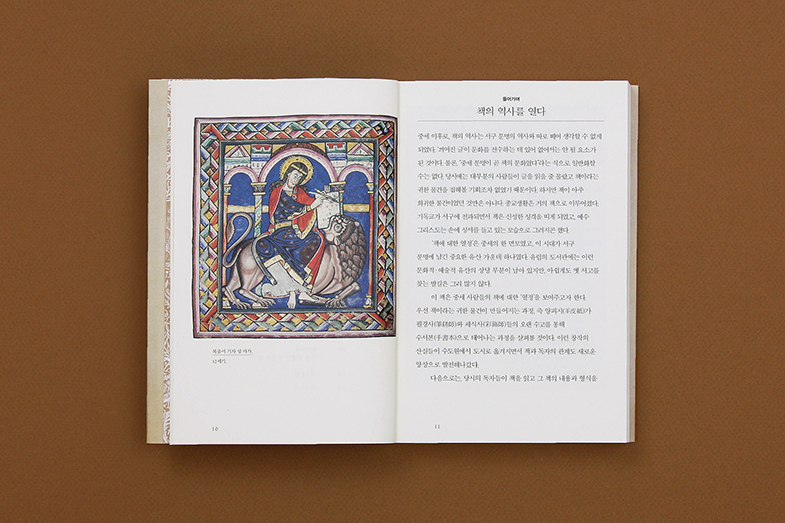 복음서 기자 성 마가,
12세기.
10
들어가며
책의 역사를 열다
중세 이후로, 책의 역사는 서구 문명의 역사와 따로 떼어 생각할 수 없게
되었다. 쓰여진 글이 문화를 전수하는 데 있어 없어서는 안 될 요소가
된 것이다. 물론, '중세 문명이 곧 책의 문화였다'라는 식으로 일반화할
수는 없다. 당시에는 대부분의 사람들이 글을 읽을 줄 몰랐고 책이라는
귀한 물건을 접해볼 기회조차 없었기 때문이다. 하지만 책이 아주
희귀한 물건이었던 것만은 아니다. 종교생활은 거의 책으로 이루어졌다.
기독교가 서구에 전파되면서 책은 신성한 성격을 띠게 되었고, 예수
그리스도는 손에 성서를 들고 있는 모습으로 그려지곤 했다.
'책에 대한 열정'은 중세의 한 면모였고, 이 시대가 서구
문명에 남긴 중요한 유산 가운데 하나였다. 유럽의 도서관에는 이런
문화적·예술적 유산의 상당 부분이 남아 있지만, 아쉽게도 옛 서고를
찾는 발길은 그리 많지 않다.
이 책은 중세 사람들의 책에 대한 '열정'을 보여주고자 한다.
우선, 책이라는 귀한 물건이 만들어지는 과정, 즉 양피지(羊皮紙)가
필경사(筆耕師)와 채식사(彩飾師)들의 오랜 수고를 통해
수서본(手書本)으로 태어나는 과정을 살펴볼 것이다. 이런 창작의
산실들이 수도원에서 도시로 옮겨지면서 책과 독자의 관계도 새로운
양상으로 발전해나갔다.
다음으로는, 당시의 독자들이 책을 읽고 그 책의 내용과 형식을
11